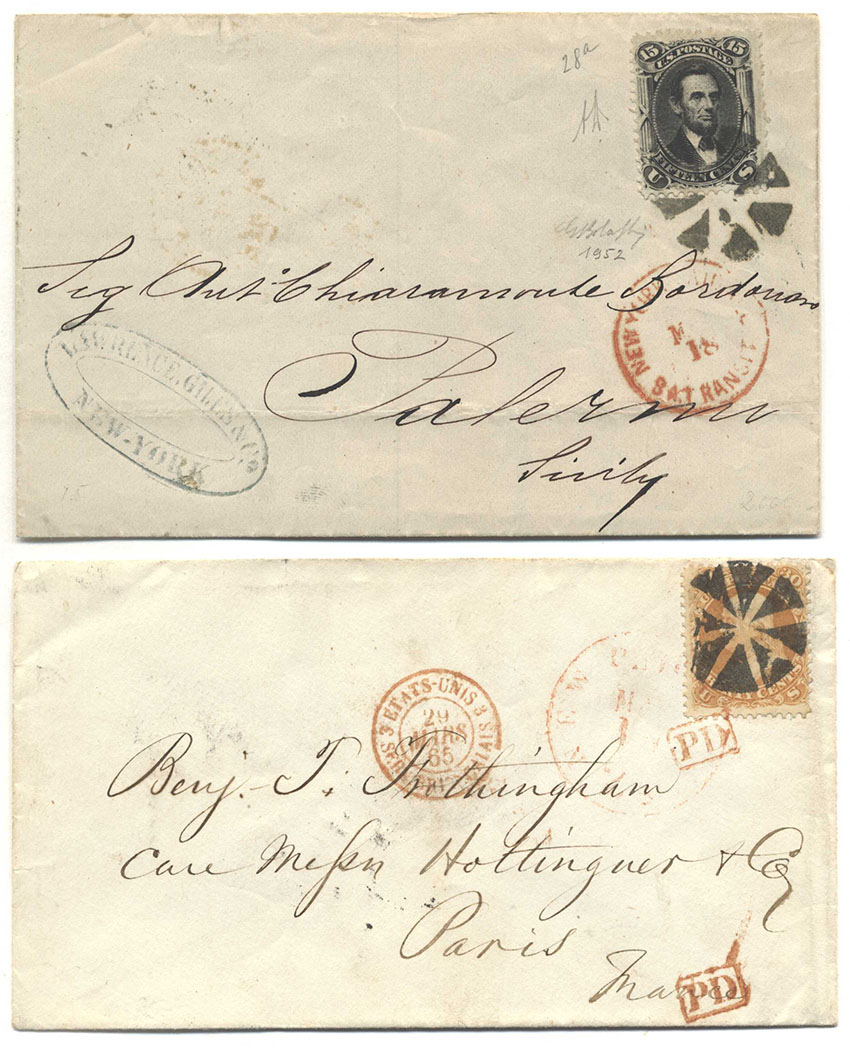 28a
15 U.S. POSTAGE 15
FIFTEEN CENTS
U S
1952
Sig Ant. Chiaramonte Bordonaro
NEW YORK
18
BR TRANSIT
LAWRENCE, GILES & Co
NEW-YORK
Palermo
Sicily
15
CENTS
S
3 ETATS-UNIS 3
29
MARS
65
PD
Benj. T. Frothingham
Care Messrs Hottinguer & Co
Paris
France
PD